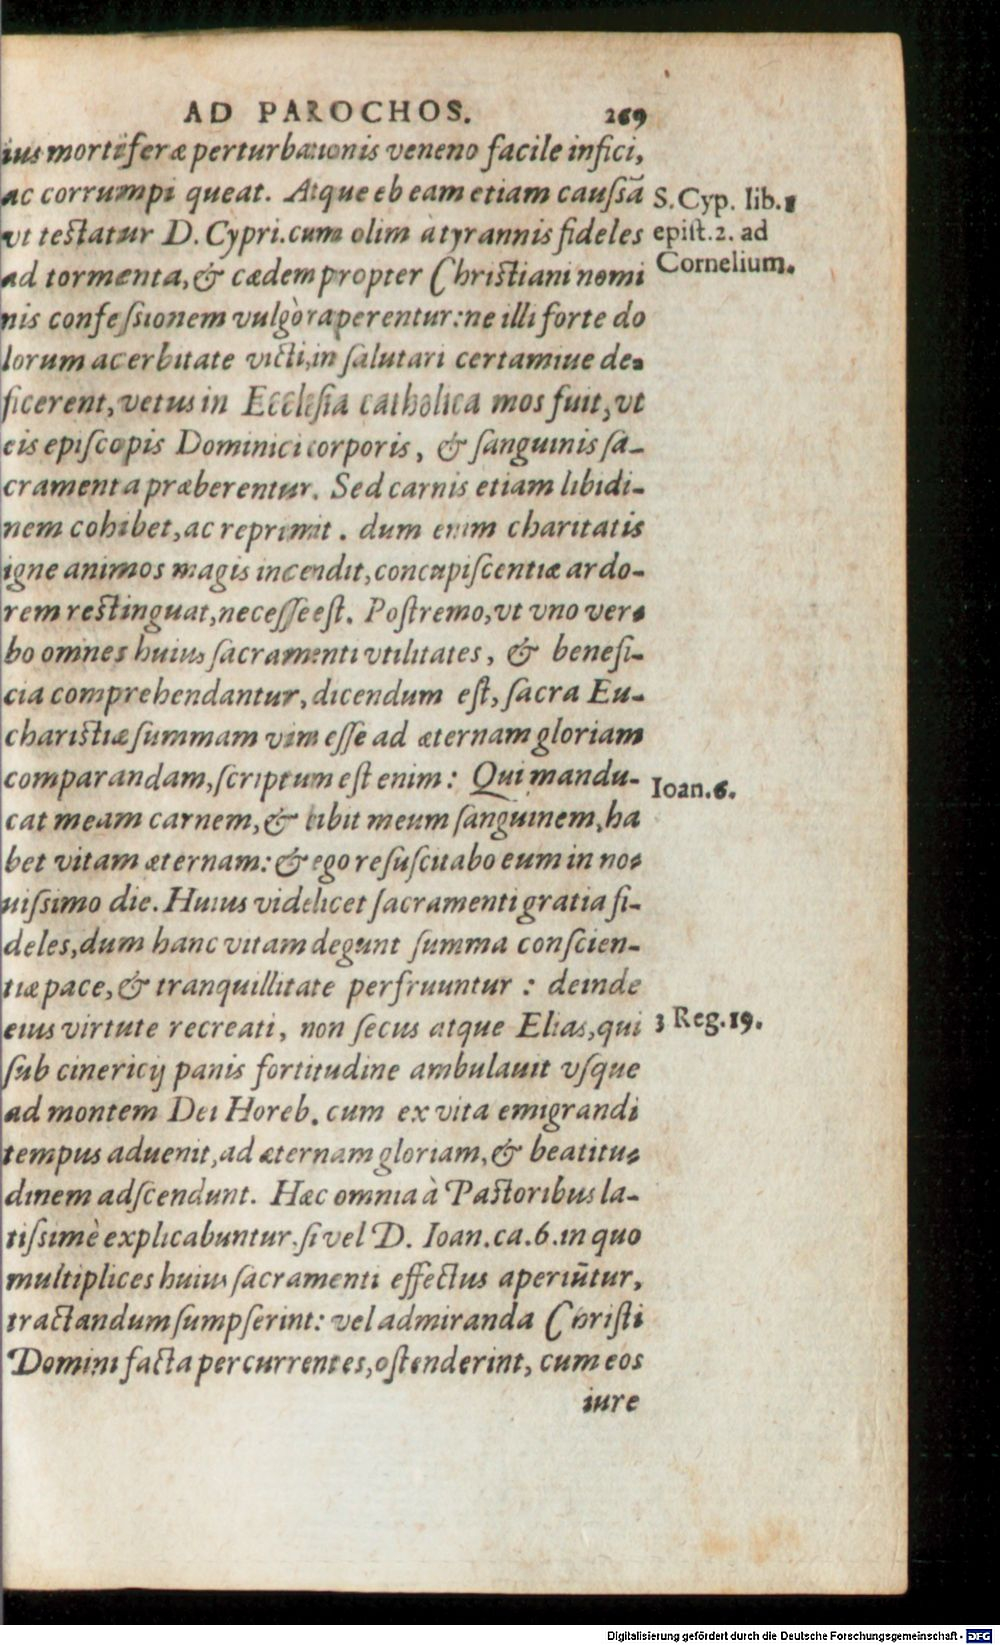 AD PAROCHOS. 269
ius mortiferæ perturbationis veneno facile infici,
ac corrumpi queat. Atque eb eam etiam caussā
vt testatur D. Cypri. cum olim à tyrannis fideles
ad tormenta, & cædem propter Christiani nomi
nis confessionem vulgò raperentur: ne illi forte do
lorum acerbitate victi, in salutari certamiue de-
ficerent, vetus in Ecclesia catholica mos fuit, vt
eis episcopis Dominici corporis, & sanguinis sa-
cramenta præberentur. Sed carnis etiam libidi-
nem cohibet, ac reprimit. dum enim charitatis
igne animos magis incendit, concupiscentiæ ardo-
rem restinguat, necesse est. Postremo, vt vno ver-
bo omnes huius sacramenti vtilitates, & benefi-
cia comprehendantur, dicendum est, sacra Eu-
charistiæ summam vim esse ad æternam gloriam
comparandam, scriptum est enim: Qui mandu-
cat meam carnem, & bibit meum sanguinem, ha
bet vitam æternam: & ego resuscitabo eum in no-
uissimo die. Huius videlicet sacramenti gratia fi-
deles, dum hanc vitam degunt summa conscien-
tiæ pace, & tranquillitate perfruuntur: deinde
eius virtute recreati, non secus atque Elias, qui
sub cinericij panis fortitudine ambulauit vsque
ad montem Dei Horeb. cum ex vita emigrandi
tempus aduenit, ad æternam gloriam, & beatitu-
dinem adscendunt. Hæc omnia à Pastoribus la-
tissimè explicabuntur. si vel D. Ioan. ca. 6. in quo
multiplices huius sacramenti effectus aperiūtur,
tractandum sumpserint: vel admiranda Christi
Domini facta percurrentes, ostenderint, cum eos
iure
S. Cyp. lib. 1
epist. 2. ad
Cornelium.
Ioan. 6.
3 Reg. 19.
Digitalisierung gefördert durch die Deutsche Forschungsgemeinschaft - DFG